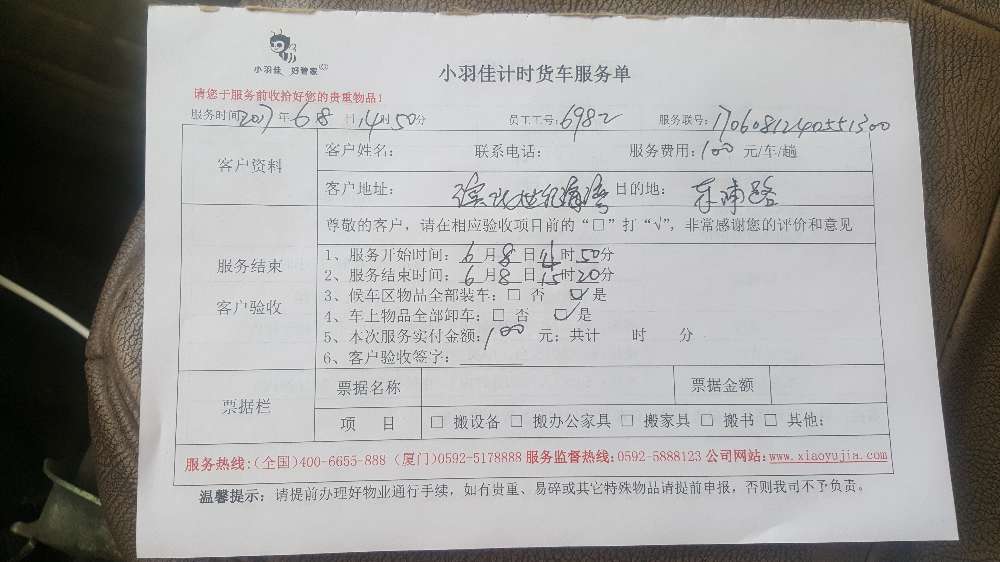 小羽佳 好管家
小羽佳计时货车服务单
请您于服务前收拾好您的贵重物品！
服务时间2017年6月8日14时50分 员工工号：6982 服务联号：17060812402551300
客户资料
客户姓名： 联系电话： 服务费用：100元/车/趟
客户地址： 目的地：东浦路
服务结束
客户验收
尊敬的客户，请在相应验收项目前的“□”打“√”，非常感谢您的评价和意见
1、服务开始时间：6月8日14时50分
2、服务结束时间：6月8日15时20分
3、候车区物品全部装车：□ 否 ☑是
4、车上物品全部卸车：□ 否 ☑是
5、本次服务实付金额：100元；共计 时 分
6、客户验收签字：
票据栏
票据名称 票据金额
项 目 □ 搬设备 □ 搬办公家具 □ 搬家具 □ 搬书 □ 其他：
服务热线：(全国)400-6655-888 (厦门)0592-5178888 服务监督热线：0592-5888123 公司网站：www.xiaoyujia.com
温馨提示：请提前办理好物业通行手续，如有贵重、易碎或其它特殊物品请提前申报，否则我司不予负责。